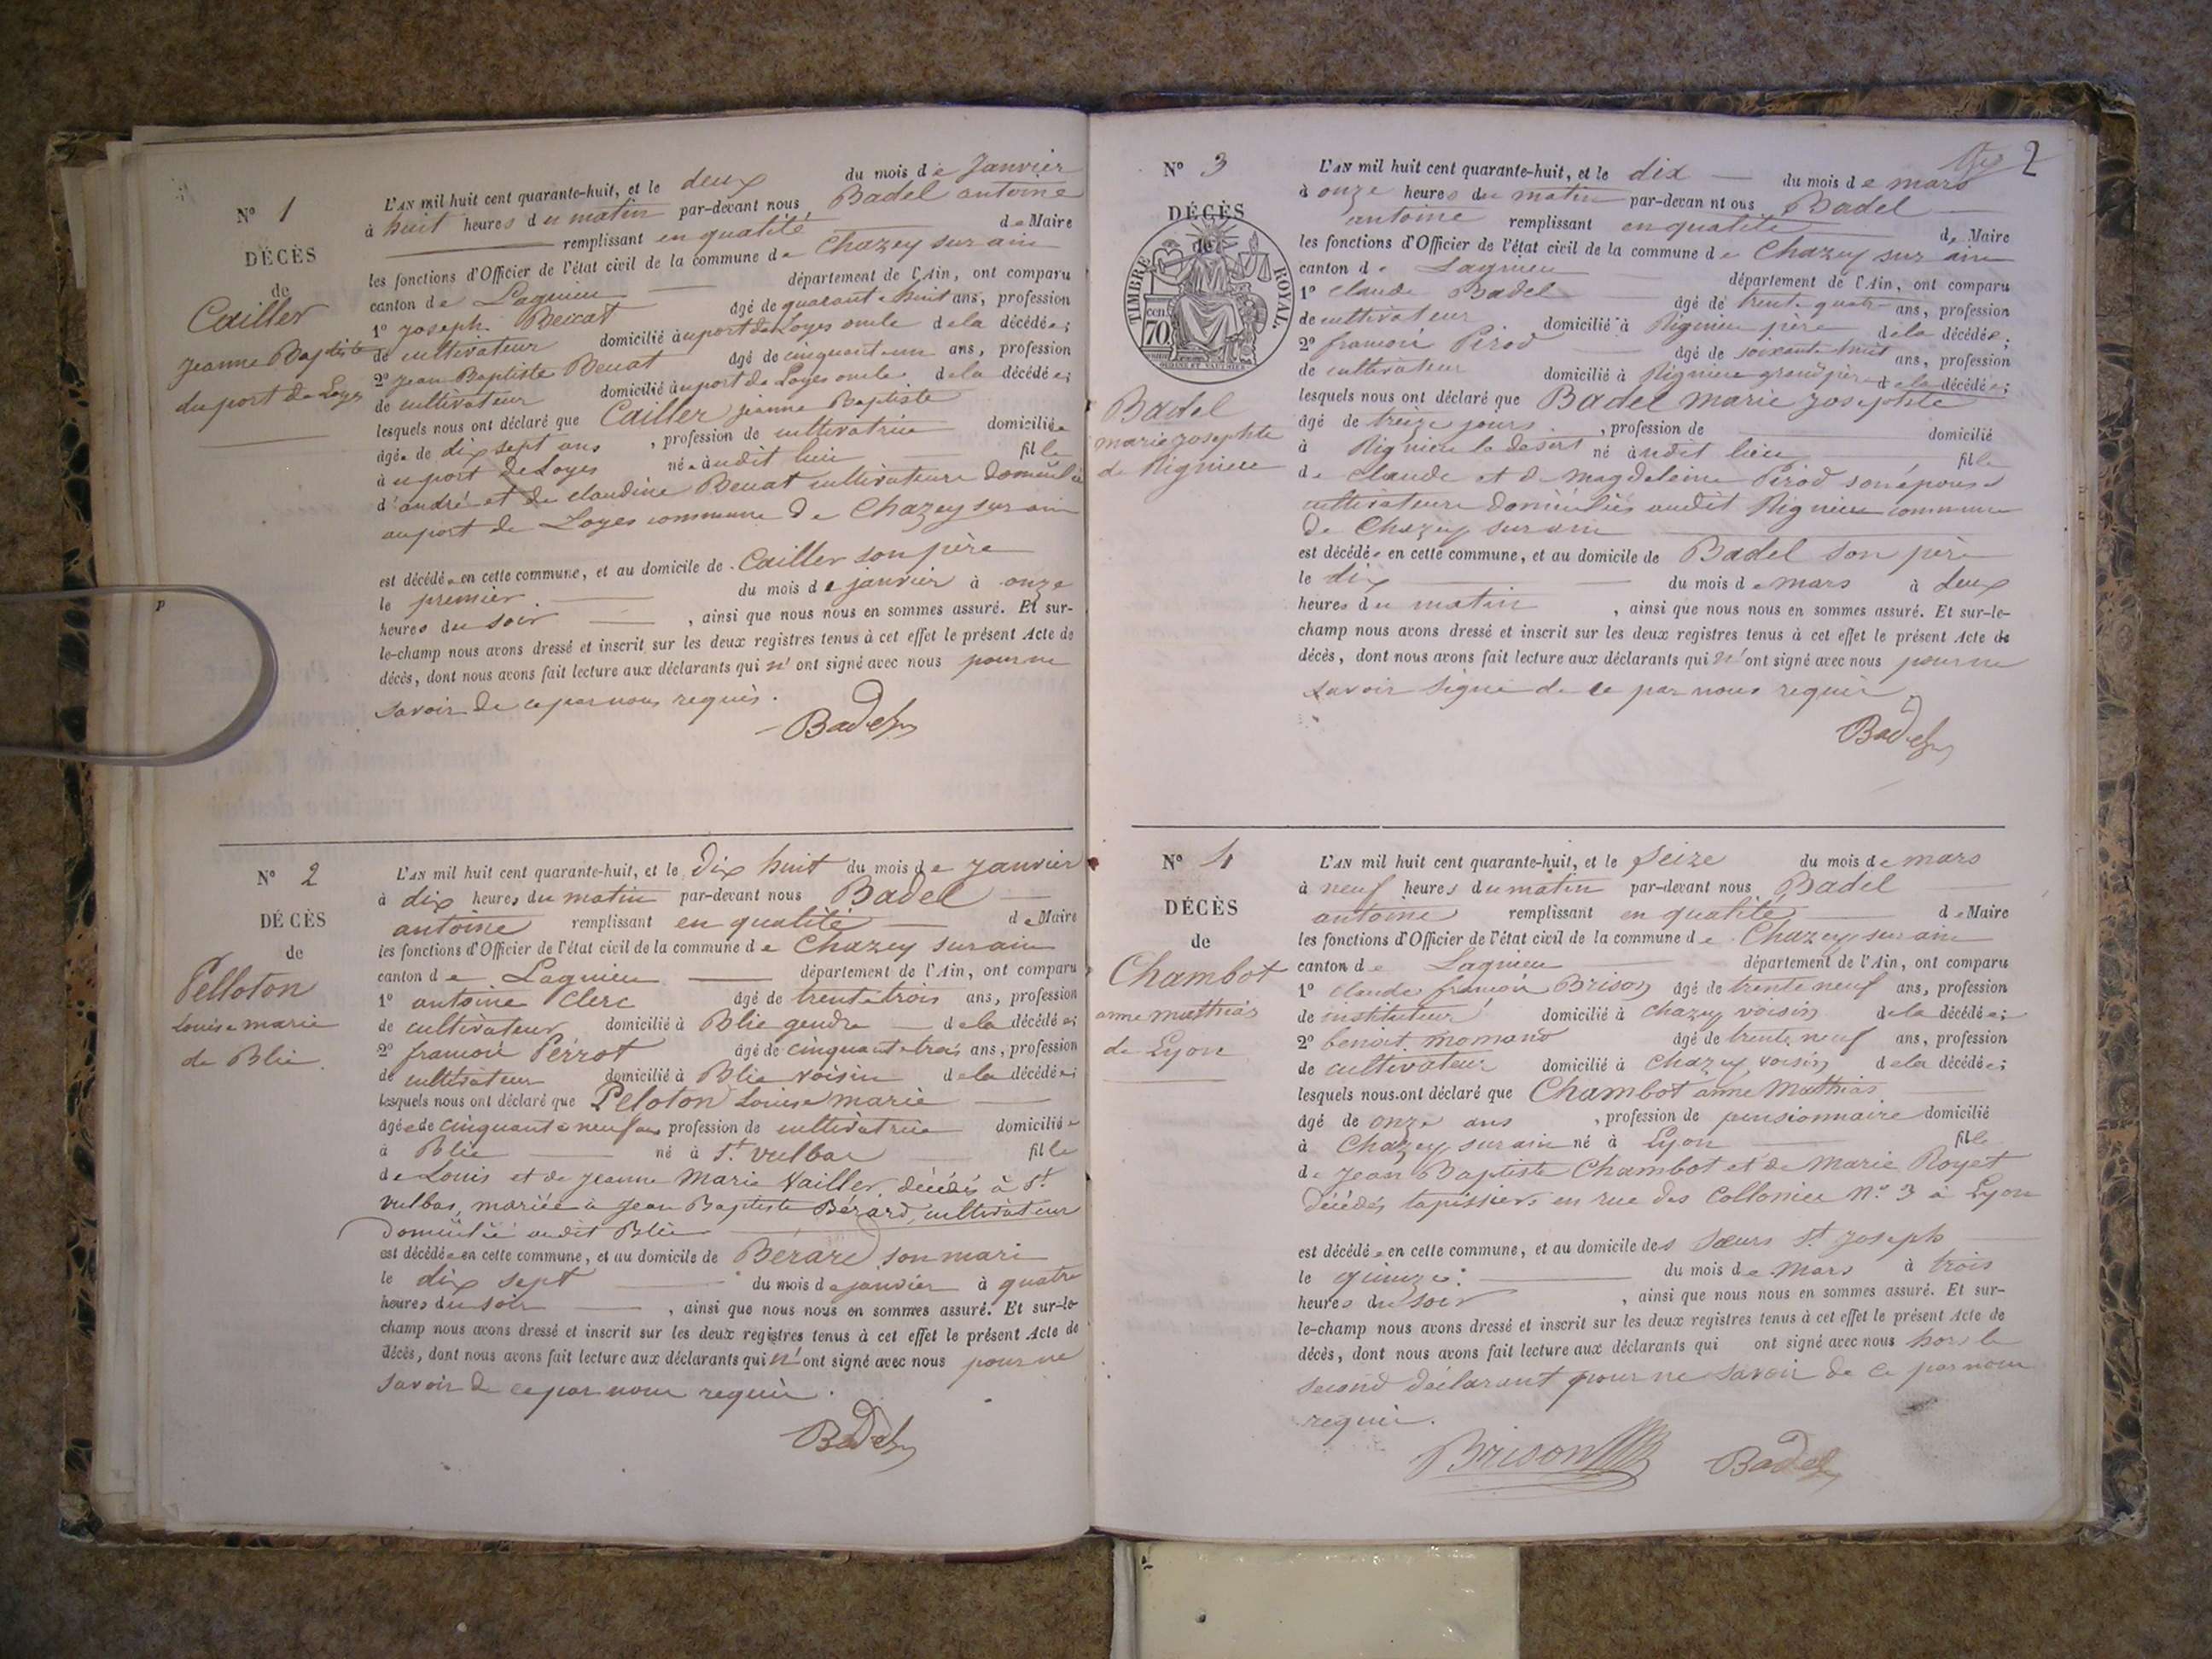 N° 1
DÉCÈS
de
Cailler
jeanne Baptiste
du port de Loyes
L'AN mil huit cent quarante-huit, et le deux du mois de Janvier
à huit heures du matin par-devant nous Badel antoine
remplissant en qualité de Maire
les fonctions d'Officier de l'état civil de la commune de Chazey sur ain
canton de Lagnieu département de l'Ain, ont comparu
1° joseph Beuat âgé de quarante huit ans, profession
de cultivateur domicilié au port de Loyes oncle de la décédée;
2° jean Baptiste Beuat âgé de cinquant un ans, profession
de cultivateur domicilié au port de Loyes oncle de la décédée;
lesquels nous ont déclaré que Cailler jeanne Baptiste
âgée de dix sept ans, profession de cultivatrice domiciliée
au port de Loyes née audit lieu fille
d'andré et de claudine Beuat cultivateurs domicilié
au port de Loyes commune de Chazey sur ain
est décédée en cette commune, et au domicile de Cailler son père
le premier du mois de janvier à onze
heures du soir, ainsi que nous nous en sommes assuré. Et sur-
le-champ nous avons dressé et inscrit sur les deux registres tenus à cet effet le présent Acte de
décès, dont nous avons fait lecture aux déclarants qui n'ont signé avec nous pour ne
savoir de ce par nous requis.
Badel
N° 2
DÉCÈS
de
Pelloton
Louise marie
de Blie
L'AN mil huit cent quarante-huit, et le Dix huit du mois de janvier
à dix heures du matin par-devant nous Badel
antoine remplissant en qualité de Maire
les fonctions d'Officier de l'état civil de la commune de Chazey sur ain
canton de Lagnieu département de l'Ain, ont comparu
1° antoine Clerc âgé de trente trois ans, profession
de cultivateur domicilié à Blie gendre de la décédée;
2° françois Perrot âgé de cinquante trois ans, profession
de cultivateur domicilié à Blie voisin de la décédée;
lesquels nous ont déclaré que Peloton Louise marie
âgée de cinquante neuf ans profession de cultivatrice domiciliée
à Blie né à St. vulbas fille
de Louis et de jeanne Marie Vailler, décédés à St.
vulbas, mariée à jean Baptiste Bérard, cultivateur
Domicilié audit Blie
est décédée en cette commune, et au domicile de Bérard son mari
le dix sept du mois de janvier à quatre
heures du soir, ainsi que nous nous en sommes assuré. Et sur-le-
champ nous avons dressé et inscrit sur les deux registres tenus à cet effet le présent Acte de
décès, dont nous avons fait lecture aux déclarants qui n'ont signé avec nous pour ne
savoir de ce par nous requis.
Badel
2
N° 3
DÉCÈS
de
TIMBRE ROYAL
70 cen
Badel
marie josephte
de Rignieu
L'AN mil huit cent quarante-huit, et le dix du mois de mars
à onze heures du matin par-devan nt ous Badel
antoine remplissant en qualité de Maire
les fonctions d'Officier de l'état civil de la commune de Chazey sur ain
canton de Lagnieu département de l'Ain, ont comparu
1° claude Badel âgé de trente quatre ans, profession
de cultivateur domicilié à Rignieu père de la décédée;
2° françois Pirod âgé de soixante huit ans, profession
de cultivateur domicilié à Rignieu grand père de la décédée;
lesquels nous ont déclaré que Badel marie josephte
âgé de treize jours, profession de domicilié
à Rignieu le désert né audit lieu fille
de claude et de magdeleine Pirod son épouse
cultivateurs domiciliés audit Rignieu commune
De Chazey sur ain
est décédée en cette commune, et au domicile de Badel son père
le dix du mois de mars à deux
heures du matin, ainsi que nous nous en sommes assuré. Et sur-le-
champ nous avons dressé et inscrit sur les deux registres tenus à cet effet le présent Acte de
décès, dont nous avons fait lecture aux déclarants qui n'ont signé avec nous pour ne
savoir signé de ce par nous requis
Badel
N° 4
DÉCÈS
de
Chambot
anne matthias
de Lyon
L'AN mil huit cent quarante-huit, et le seize du mois de mars
à neuf heures du matin par-devant nous Badel
antoine remplissant en qualité de Maire
les fonctions d'Officier de l'état civil de la commune de Chazey sur ain
canton de Lagnieu département de l'Ain, ont comparu
1° claude françois Brison âgé de trente neuf ans, profession
de instituteur domicilié à chazey voisin de la décédée;
2° benoit momand âgé de trente neuf ans, profession
de cultivateur domicilié à Chazey voisin de la décédée;
lesquels nous ont déclaré que Chambot anne Matthias
âgé de onze ans, profession de pensionnaire domicilié
à Chazey sur ain né à Lyon fille
de jean Baptiste Chambot et de Marie Royet
décédés tapissiers en rue des Collonies N° 3 à Lyon
est décédée en cette commune, et au domicile des sœurs St. joseph
le quinze du mois de mars à trois
heures du soir, ainsi que nous nous en sommes assuré. Et sur-
le-champ nous avons dressé et inscrit sur les deux registres tenus à cet effet le présent Acte de
décès, dont nous avons fait lecture aux déclarants qui ont signé avec nous hors le
second déclarant pour ne savoir de ce par nous
requis.
Brison Badel